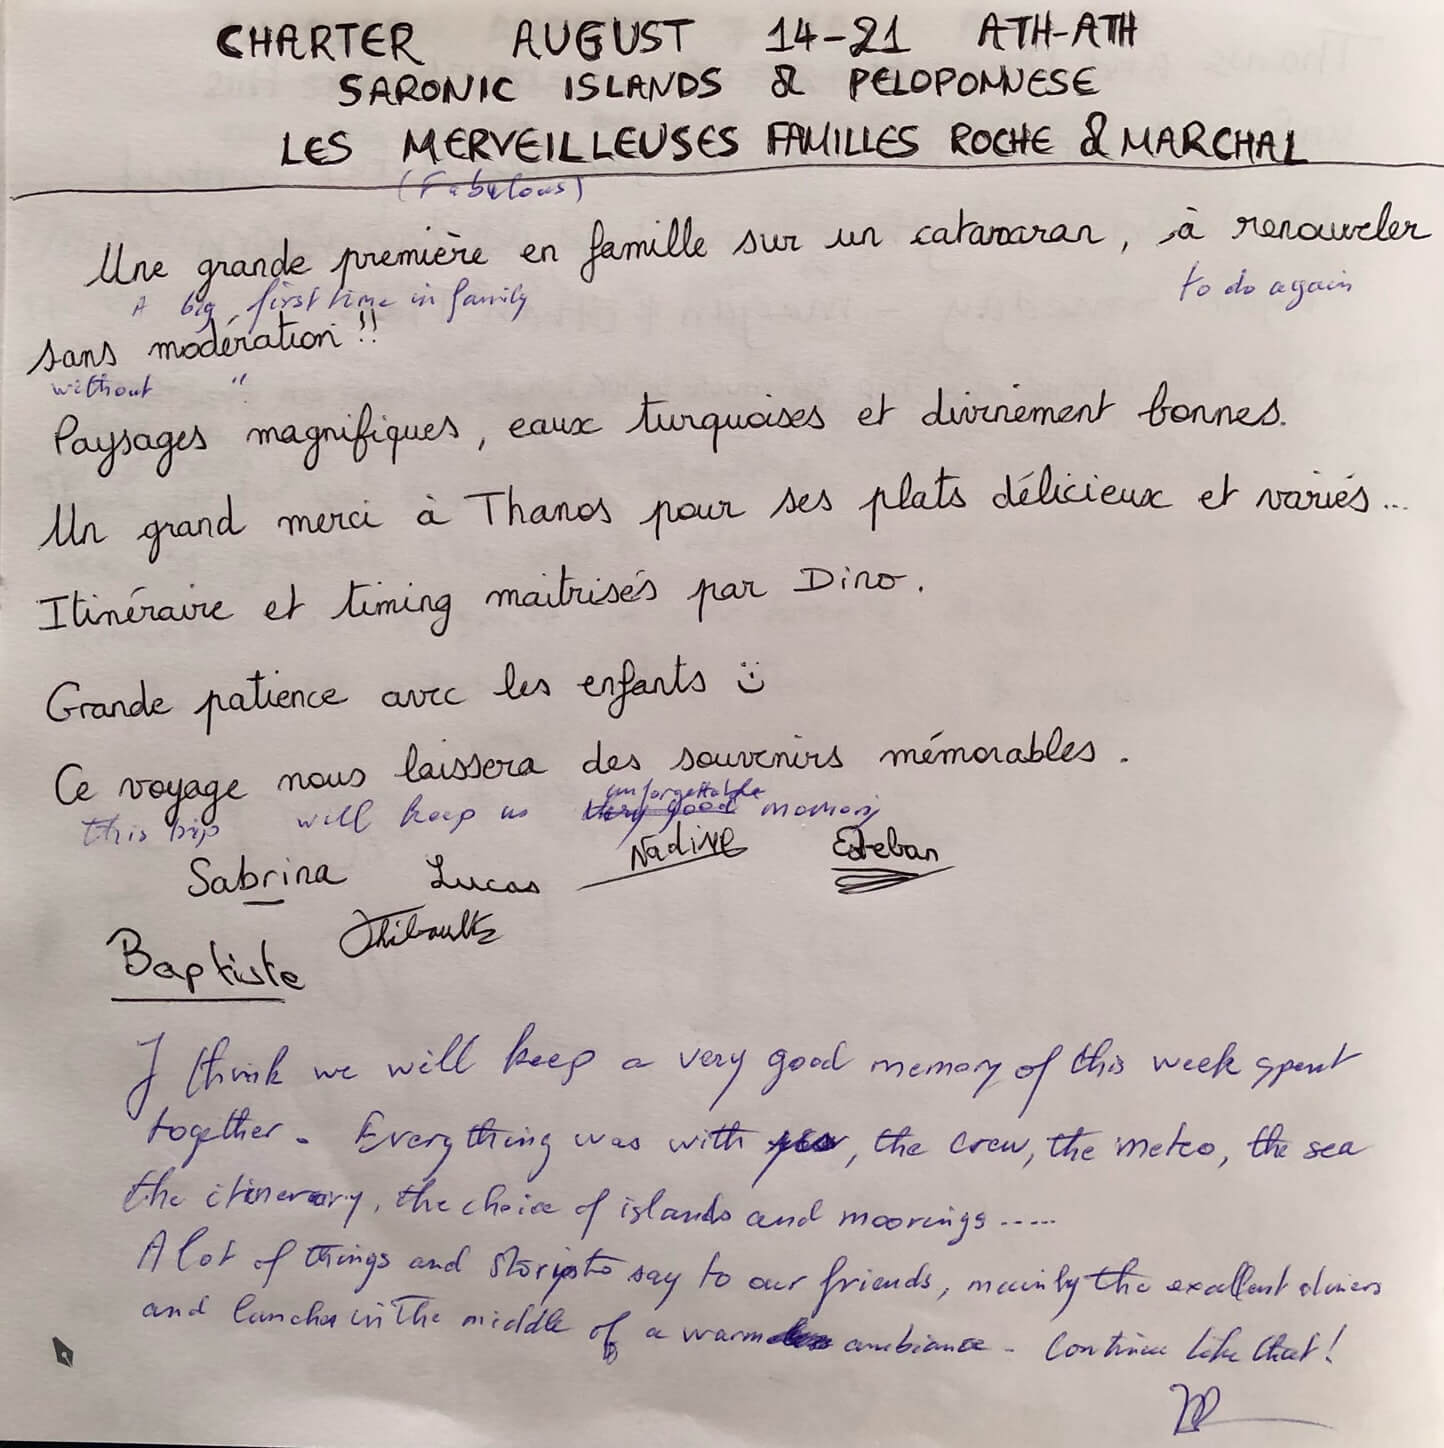 CHARTER AUGUST 14-21 ATH-ATH
SARONIC ISLANDS & PELOPONNESE
LES MERVEILLEUSES FAMILLES ROCHE & MARCHAL
(Fabulous)
Une grande première en famille sur un catamaran, à renouveler
A big first time in family to do again
sans modération !!
without "
Paysages magnifiques, eaux turquoises et divinement bonnes.
Un grand merci à Thanos pour ses plats délicieux et variés...
Itinéraire et timing maitrisés par Dino.
Grande patience avec les enfants
Ce voyage nous laissera des souvenirs mémorables.
unforgettable
this trip will keep us very good memory
Nadine Esteban
Sabrina Lucas
Thibault
Baptiste
I think we will keep a very good memory of this week spent
together. Everything was with , the crew, the meteo, the sea
the itinerary, the choice of islands and moorings .....
A lot of things and to say to our friends, mainly the excellent diners
and in the middle of a warm ambiance. Continue like that!